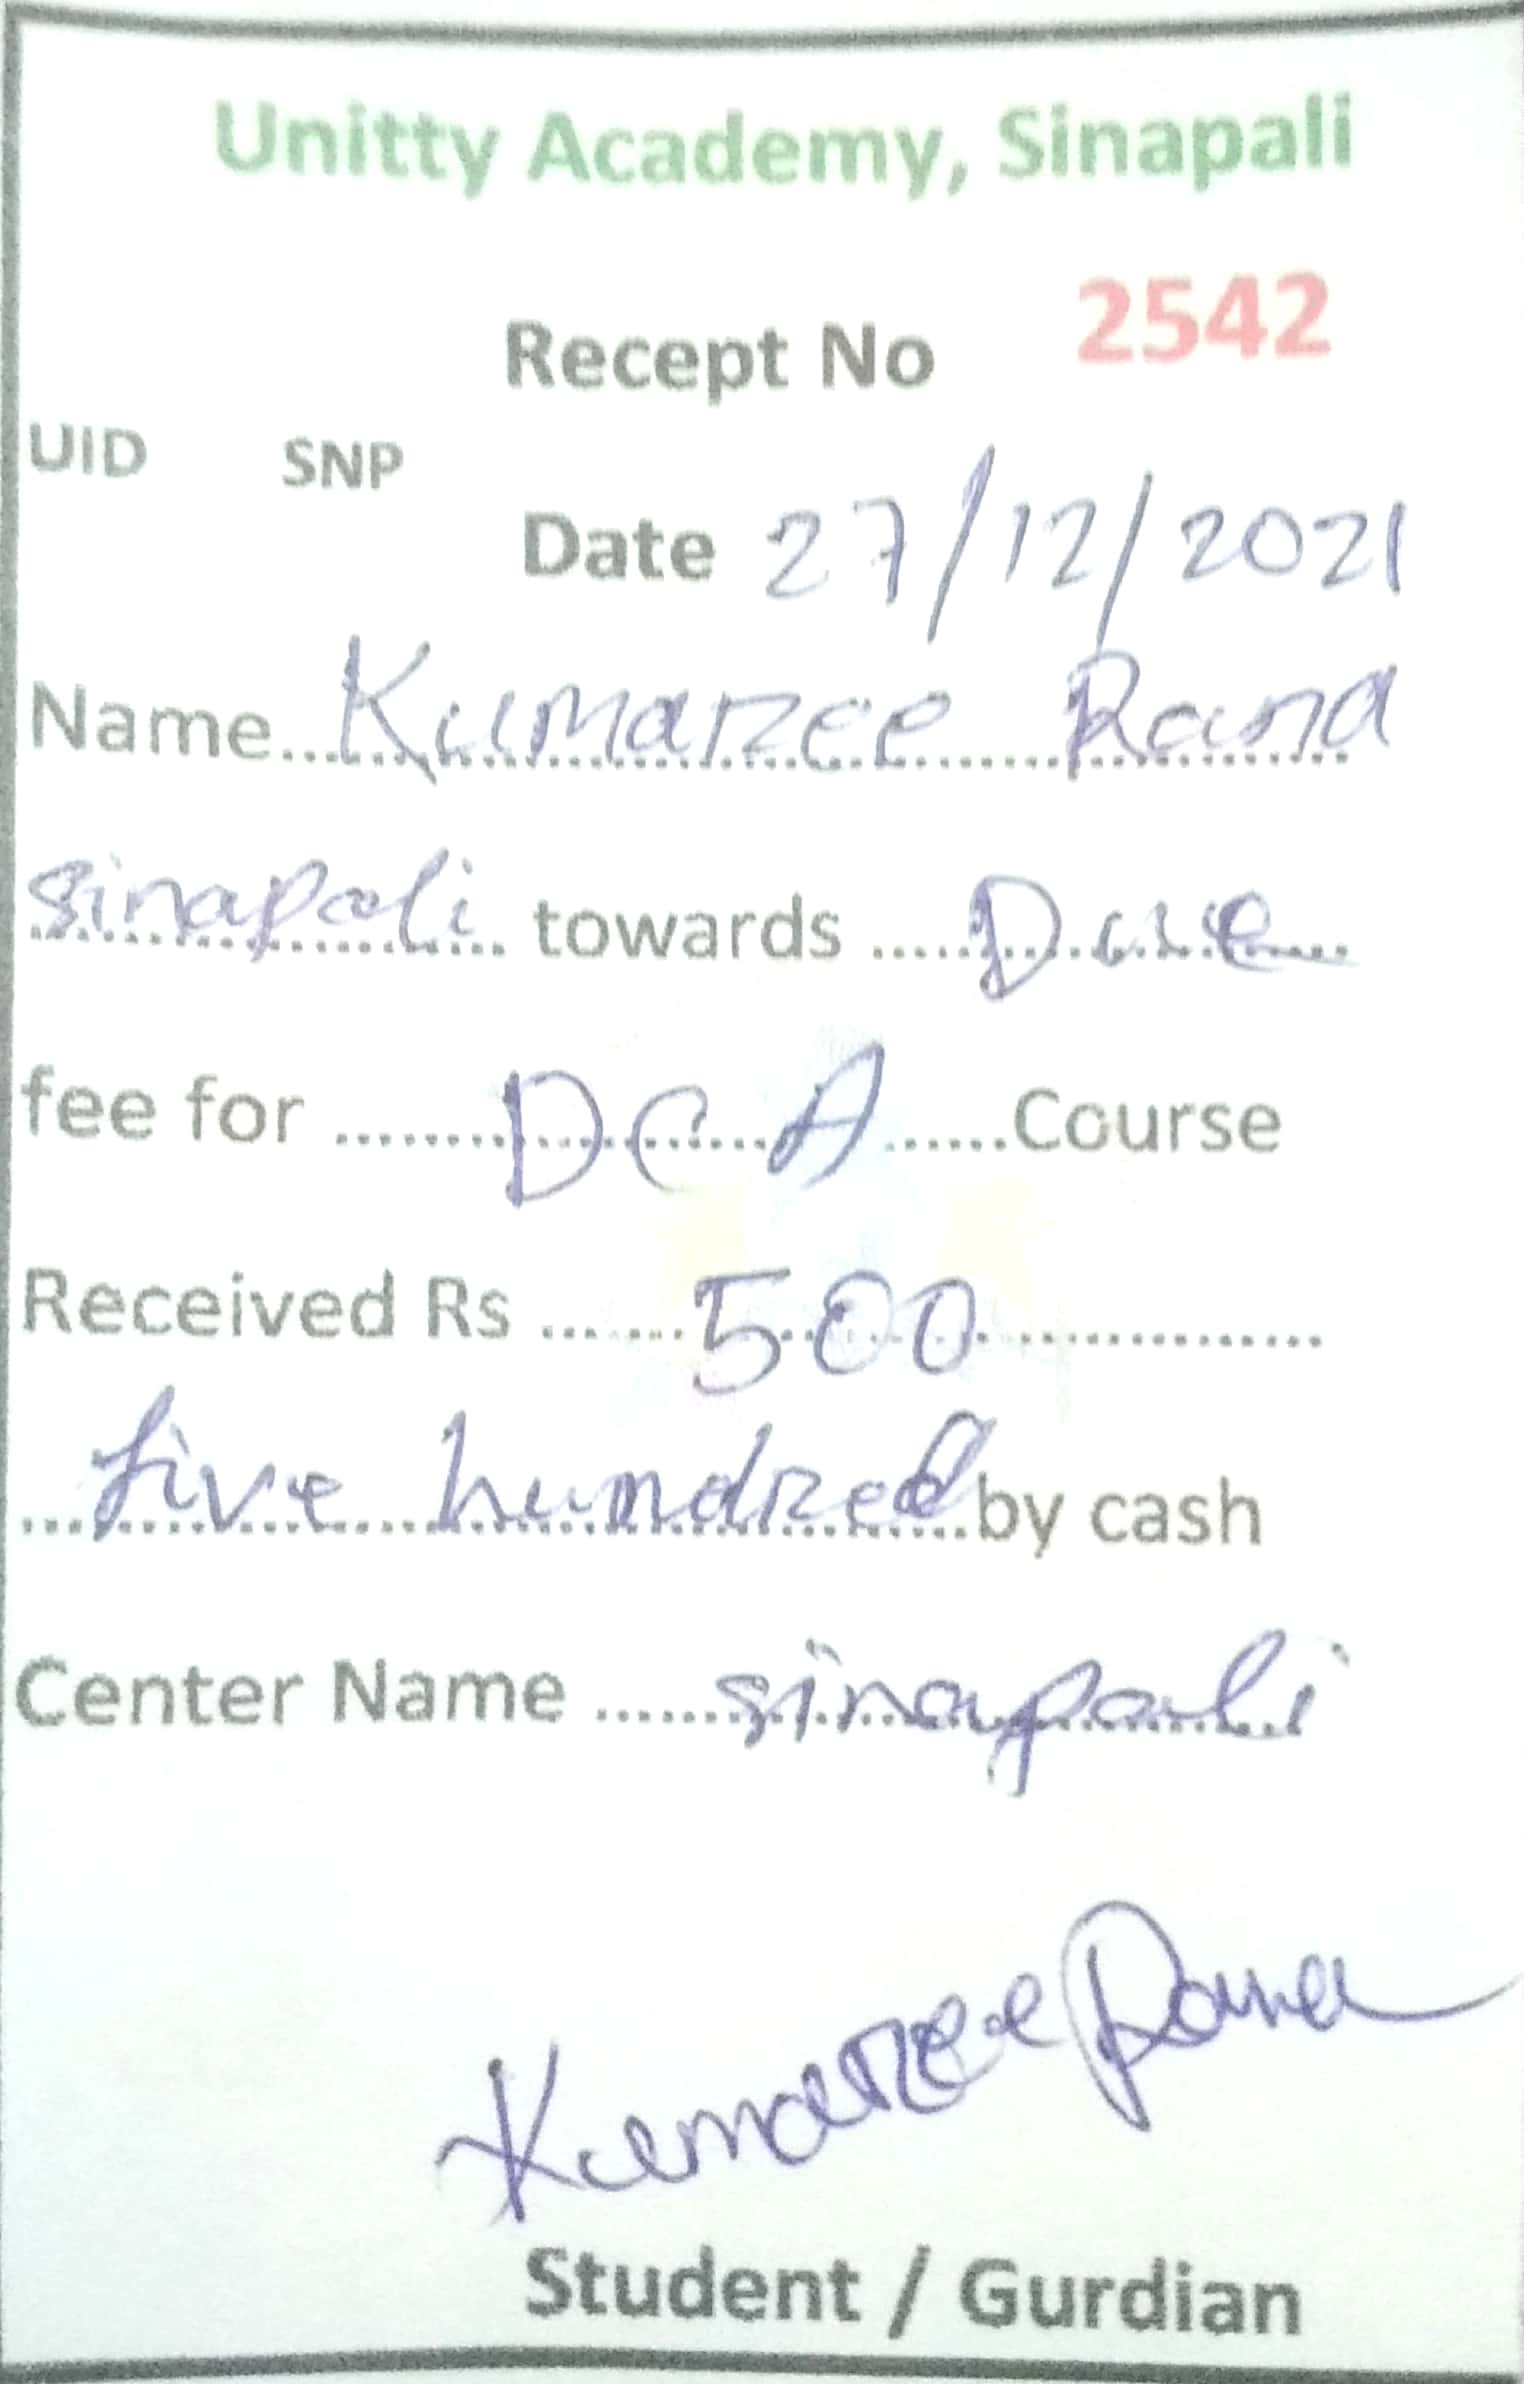 Unitty Academy, Sinapali
Recept No 2542
UID SNP
Date 27/12/2021
Name...Kumaree Rana
Sinapali towards ......Due
fee for ........DCA......Course
Received Rs .......500...............
...five hundred by cash
Center Name ......sinapali
Kumaree Rana
Student / Gurdian